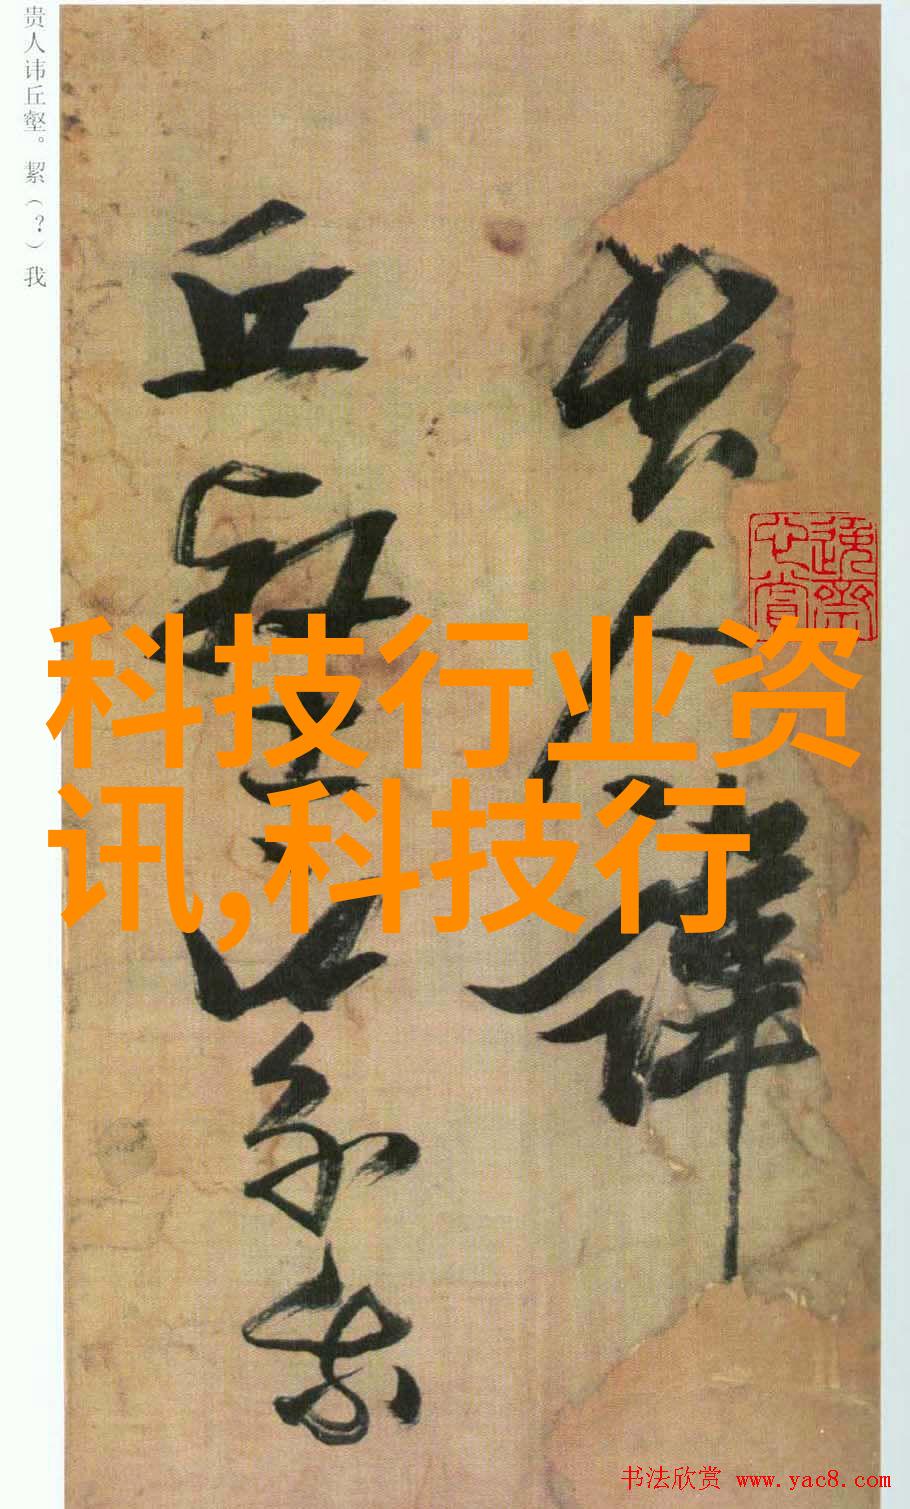 贵人讳丘壑。絜（?）我
贵人讳
丘壑絜我
科技行业资
讯,科技行
书法欣赏 www.yac8.com